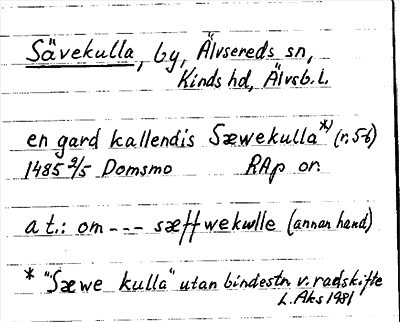 Sävekulla, by, Älvsereds sn,
Kinds hd, Älvsb. l.
en gard kallendis Sæwekulla*) (r. 5-6)
1485 2/5 Domsmo RAp or.
a t.: om --- sæffwekwlle (annan hand)
* "Sæwe kulla" utan bindestr. v. radskifte
L. Aks 1981